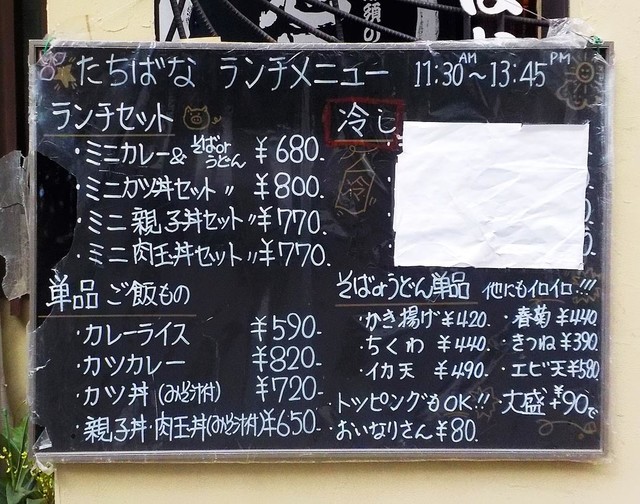 たちばな ランチメニュー 11:30AM～13:45PM
ランチセット
・ミニカレー& そばorうどん ¥680.
・ミニカツ丼セット 〃 ¥800.
・ミニ親子丼セット〃¥770.
・ミニ肉玉丼セット〃¥770.
冷し
冷
単品 ご飯もの
・カレーライス ¥590-
・カツカレー ¥820-
・カツ丼(みそ汁付) ¥720-
・親子丼・肉玉丼(みそ汁付)¥650-
そばorうどん単品 他にもイロイロ!!!
・かき揚げ¥420. ・春菊 ¥440
・ちくわ ¥440. ・きつね¥390.
・イカ天 ¥490. ・エビ天¥580
・トッピングもOK!! 大盛+¥90で
おいなりさん¥80.